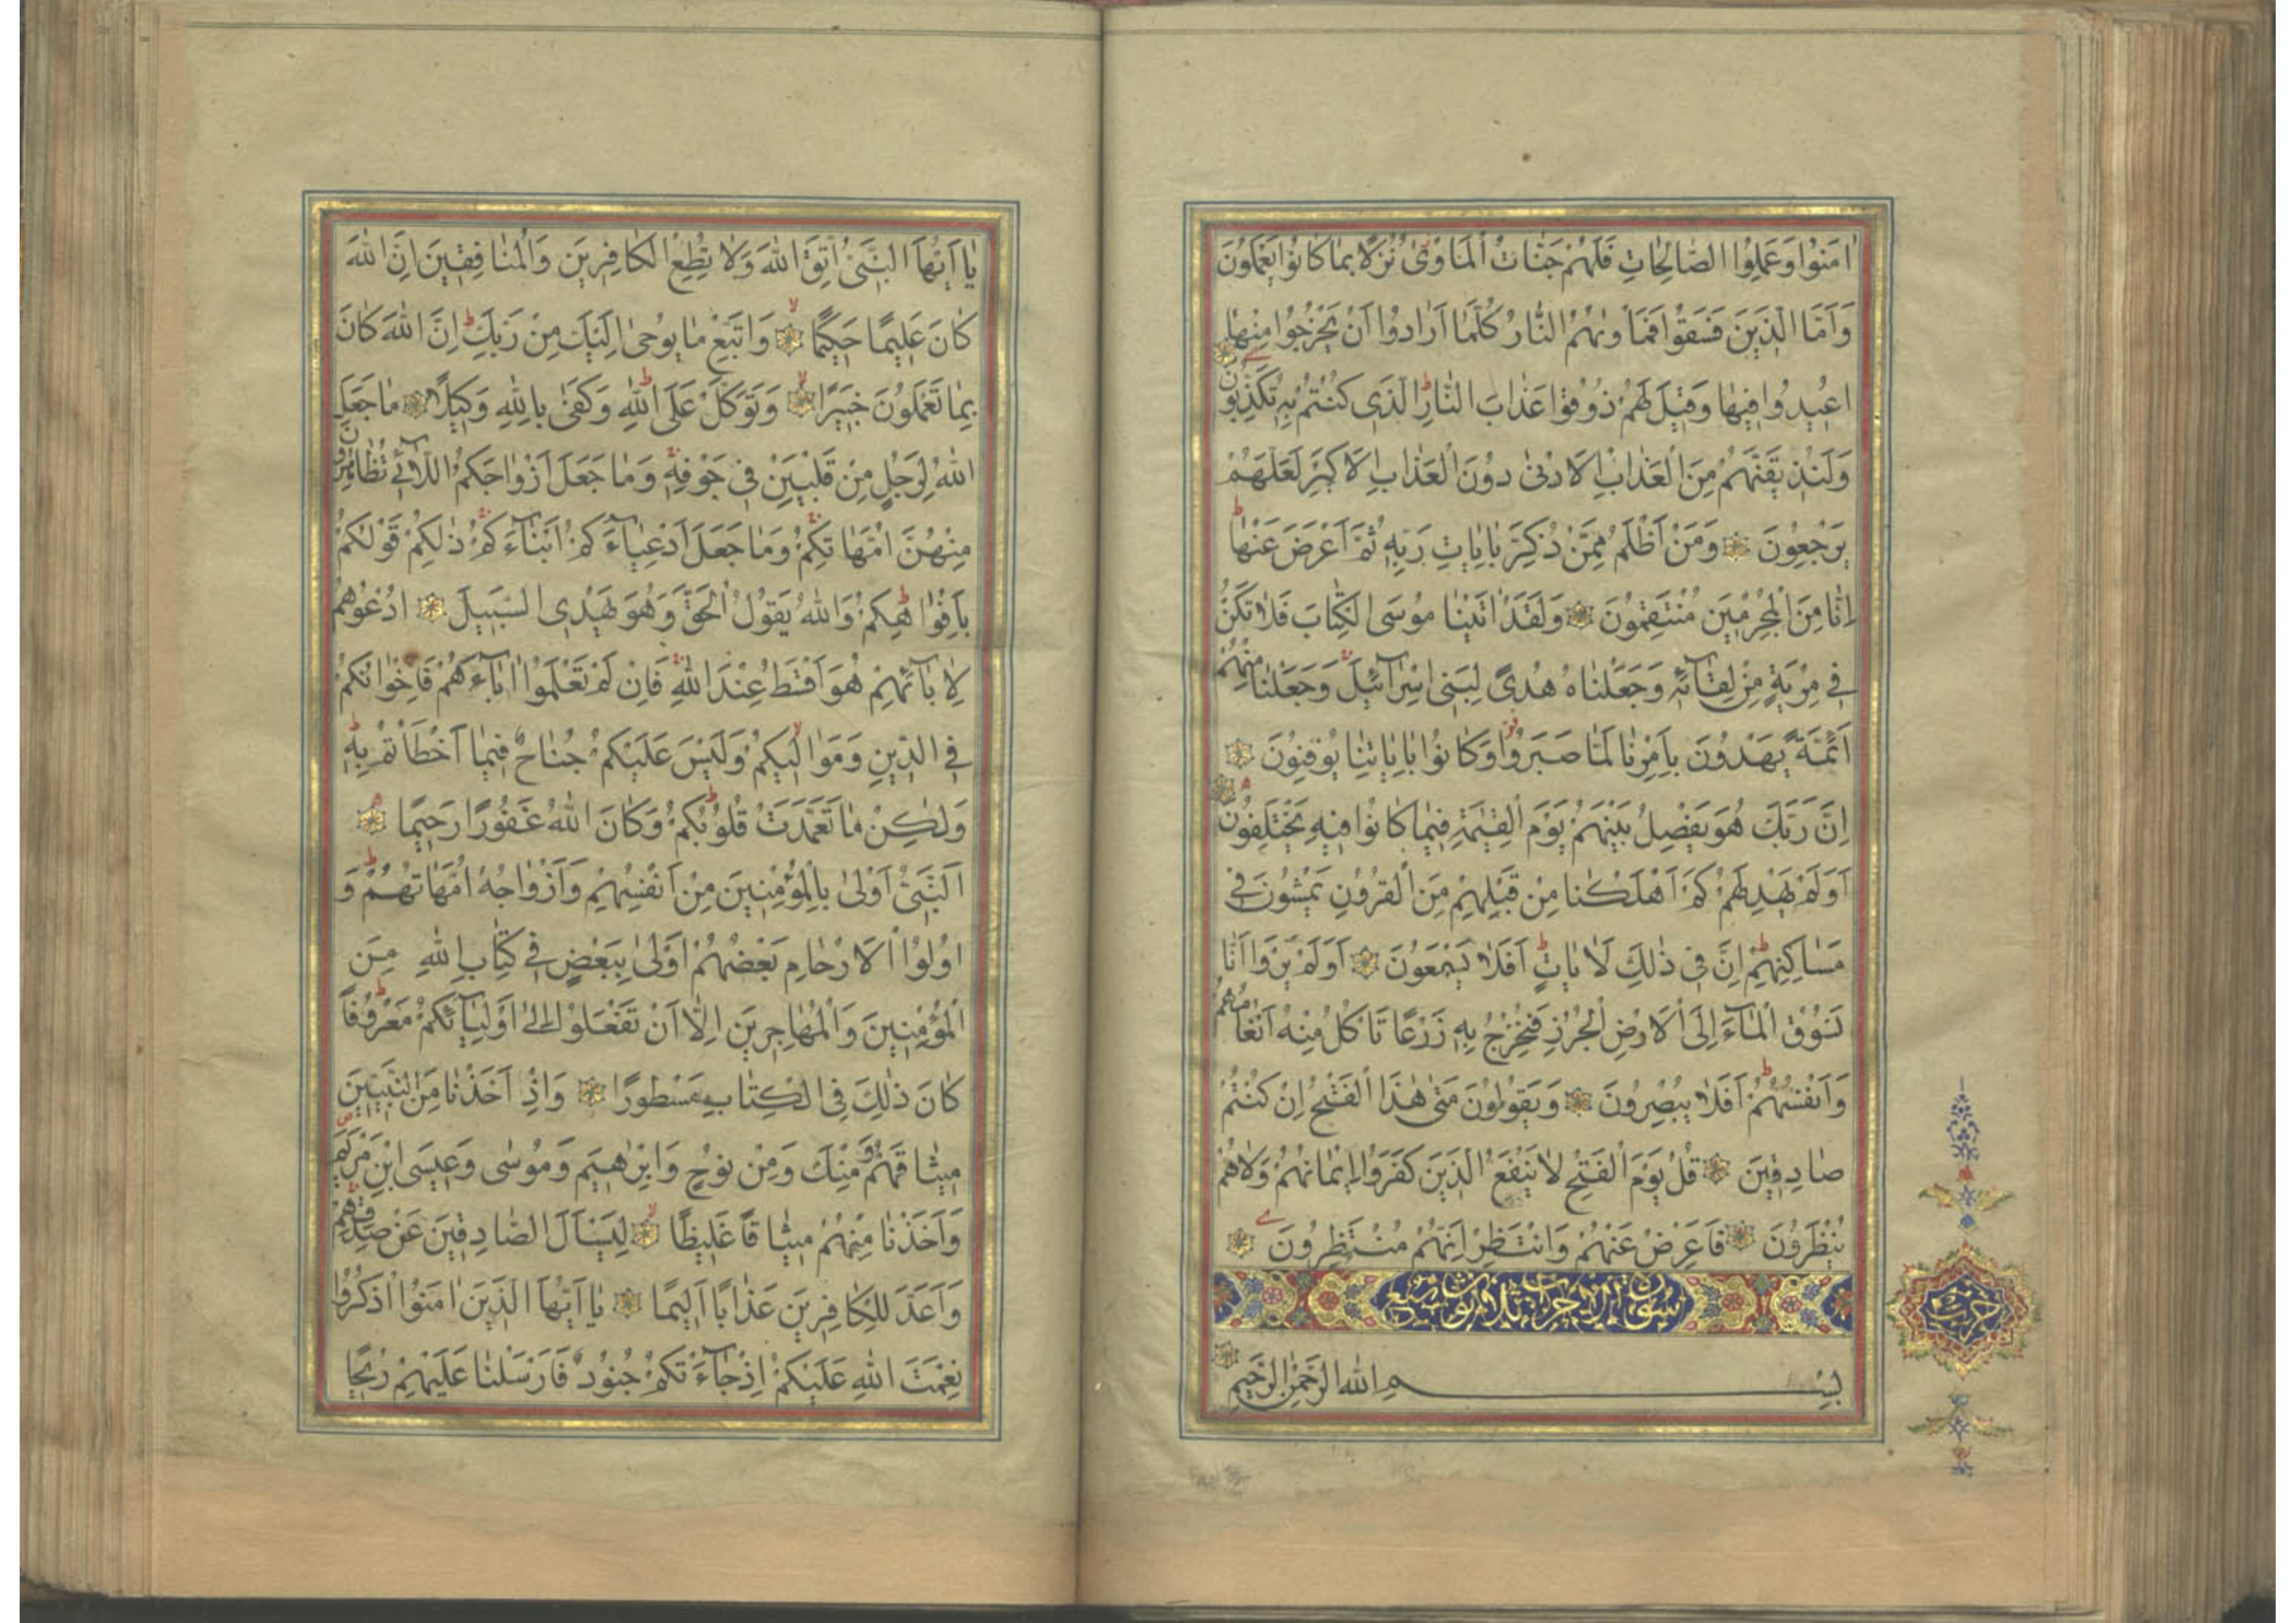 اٰمَنُوا وَعَمِلُوا الصَّالِحَاتِ فَلَهُمْ جَنَّاتُ الْمَاْوٰى نُزُلًا بِمَا كَانُوا يَعْمَلُونَ
وَاَمَّا الَّذِينَ فَسَقُوا فَمَاْوٰيهُمُ النَّارُ كُلَّمَا اَرَادُوا اَنْ يَخْرُجُوا مِنْهَا
اُعِيدُوا فِيهَا وَقِيلَ لَهُمْ ذُوقُوا عَذَابَ النَّارِ الَّذِى كُنْتُمْ بِهِ تُكَذِّبُونَ
وَلَنُذِيقَنَّهُمْ مِنَ الْعَذَابِ الْاَدْنٰى دُونَ الْعَذَابِ الْاَكْبَرِ لَعَلَّهُمْ
يَرْجِعُونَ وَمَنْ اَظْلَمُ مِمَّنْ ذُكِّرَ بِاٰيَاتِ رَبِّهِ ثُمَّ اَعْرَضَ عَنْهَا
اِنَّا مِنَ الْمُجْرِمِينَ مُنْتَقِمُونَ وَلَقَدْ اٰتَيْنَا مُوسَى الْكِتَابَ فَلَا تَكُنْ
فِى مِرْيَةٍ مِنْ لِقَآئِهِ وَجَعَلْنَاهُ هُدًى لِبَنِى اِسْرَآئِيلَ وَجَعَلْنَا مِنْهُمْ
اَئِمَّةً يَهْدُونَ بِاَمْرِنَا لَمَّا صَبَرُوا وَكَانُوا بِاٰيَاتِنَا يُوقِنُونَ
اِنَّ رَبَّكَ هُوَ يَفْصِلُ بَيْنَهُمْ يَوْمَ الْقِيٰمَةِ فِيمَا كَانُوا فِيهِ يَخْتَلِفُونَ
اَوَلَمْ يَهْدِ لَهُمْ كَمْ اَهْلَكْنَا مِنْ قَبْلِهِمْ مِنَ الْقُرُونِ يَمْشُونَ فِى
مَسَاكِنِهِمْ اِنَّ فِى ذٰلِكَ لَاٰيَاتٍ اَفَلَا يَسْمَعُونَ اَوَلَمْ يَرَوْا اَنَّا
نَسُوقُ الْمَآءَ اِلَى الْاَرْضِ الْجُرُزِ فَنُخْرِجُ بِهِ زَرْعًا تَاْكُلُ مِنْهُ اَنْعَامُهُمْ
وَاَنْفُسُهُمْ اَفَلَا يُبْصِرُونَ وَيَقُولُونَ مَتٰى هٰذَا الْفَتْحُ اِنْ كُنْتُمْ
صَادِقِينَ قُلْ يَوْمَ الْفَتْحِ لَا يَنْفَعُ الَّذِينَ كَفَرُوا اِيمَانُهُمْ وَلَا هُمْ
يُنْظَرُونَ فَاَعْرِضْ عَنْهُمْ وَانْتَظِرْ اِنَّهُمْ مُنْتَظِرُونَ
سورة الاحزاب ثلاث وسبع
حزب
بِسْمِ اللهِ الرَّحْمٰنِ الرَّحِيمِ
يَا اَيُّهَا النَّبِىُّ اتَّقِ اللهَ وَلَا تُطِعِ الْكَافِرِينَ وَالْمُنَافِقِينَ اِنَّ اللهَ
كَانَ عَلِيمًا حَكِيمًا وَاتَّبِعْ مَا يُوحٰى اِلَيْكَ مِنْ رَبِّكَ اِنَّ اللهَ كَانَ
بِمَا تَعْمَلُونَ خَبِيرًا وَتَوَكَّلْ عَلَى اللهِ وَكَفٰى بِاللهِ وَكِيلًا مَا جَعَلَ
اللهُ لِرَجُلٍ مِنْ قَلْبَيْنِ فِى جَوْفِهِ وَمَا جَعَلَ اَزْوَاجَكُمُ اللَّآئِى تُظَاهِرُونَ
مِنْهُنَّ اُمَّهَاتِكُمْ وَمَا جَعَلَ اَدْعِيَآءَكُمْ اَبْنَآءَكُمْ ذٰلِكُمْ قَوْلُكُمْ
بِاَفْوَاهِكُمْ وَاللهُ يَقُولُ الْحَقَّ وَهُوَ يَهْدِى السَّبِيلَ اُدْعُوهُمْ
لِاٰبَآئِهِمْ هُوَ اَقْسَطُ عِنْدَ اللهِ فَاِنْ لَمْ تَعْلَمُوا اٰبَآءَهُمْ فَاِخْوَانُكُمْ
فِى الدِّينِ وَمَوَالِيكُمْ وَلَيْسَ عَلَيْكُمْ جُنَاحٌ فِيمَا اَخْطَاْتُمْ بِهِ
وَلٰكِنْ مَا تَعَمَّدَتْ قُلُوبُكُمْ وَكَانَ اللهُ غَفُورًا رَحِيمًا
اَلنَّبِىُّ اَوْلٰى بِالْمُؤْمِنِينَ مِنْ اَنْفُسِهِمْ وَاَزْوَاجُهُ اُمَّهَاتُهُمْ وَ
اُولُوا الْاَرْحَامِ بَعْضُهُمْ اَوْلٰى بِبَعْضٍ فِى كِتَابِ اللهِ مِنَ
الْمُؤْمِنِينَ وَالْمُهَاجِرِينَ اِلَّا اَنْ تَفْعَلُوا اِلٰى اَوْلِيَآئِكُمْ مَعْرُوفًا
كَانَ ذٰلِكَ فِى الْكِتَابِ مَسْطُورًا وَاِذْ اَخَذْنَا مِنَ النَّبِيِّينَ
مِيثَاقَهُمْ وَمِنْكَ وَمِنْ نُوحٍ وَاِبْرٰهِيمَ وَمُوسٰى وَعِيسَى ابْنِ مَرْيَمَ
وَاَخَذْنَا مِنْهُمْ مِيثَاقًا غَلِيظًا لِيَسْاَلَ الصَّادِقِينَ عَنْ صِدْقِهِمْ
وَاَعَدَّ لِلْكَافِرِينَ عَذَابًا اَلِيمًا يَا اَيُّهَا الَّذِينَ اٰمَنُوا اذْكُرُوا
نِعْمَتَ اللهِ عَلَيْكُمْ اِذْ جَآءَتْكُمْ جُنُودٌ فَاَرْسَلْنَا عَلَيْهِمْ رِيحًا